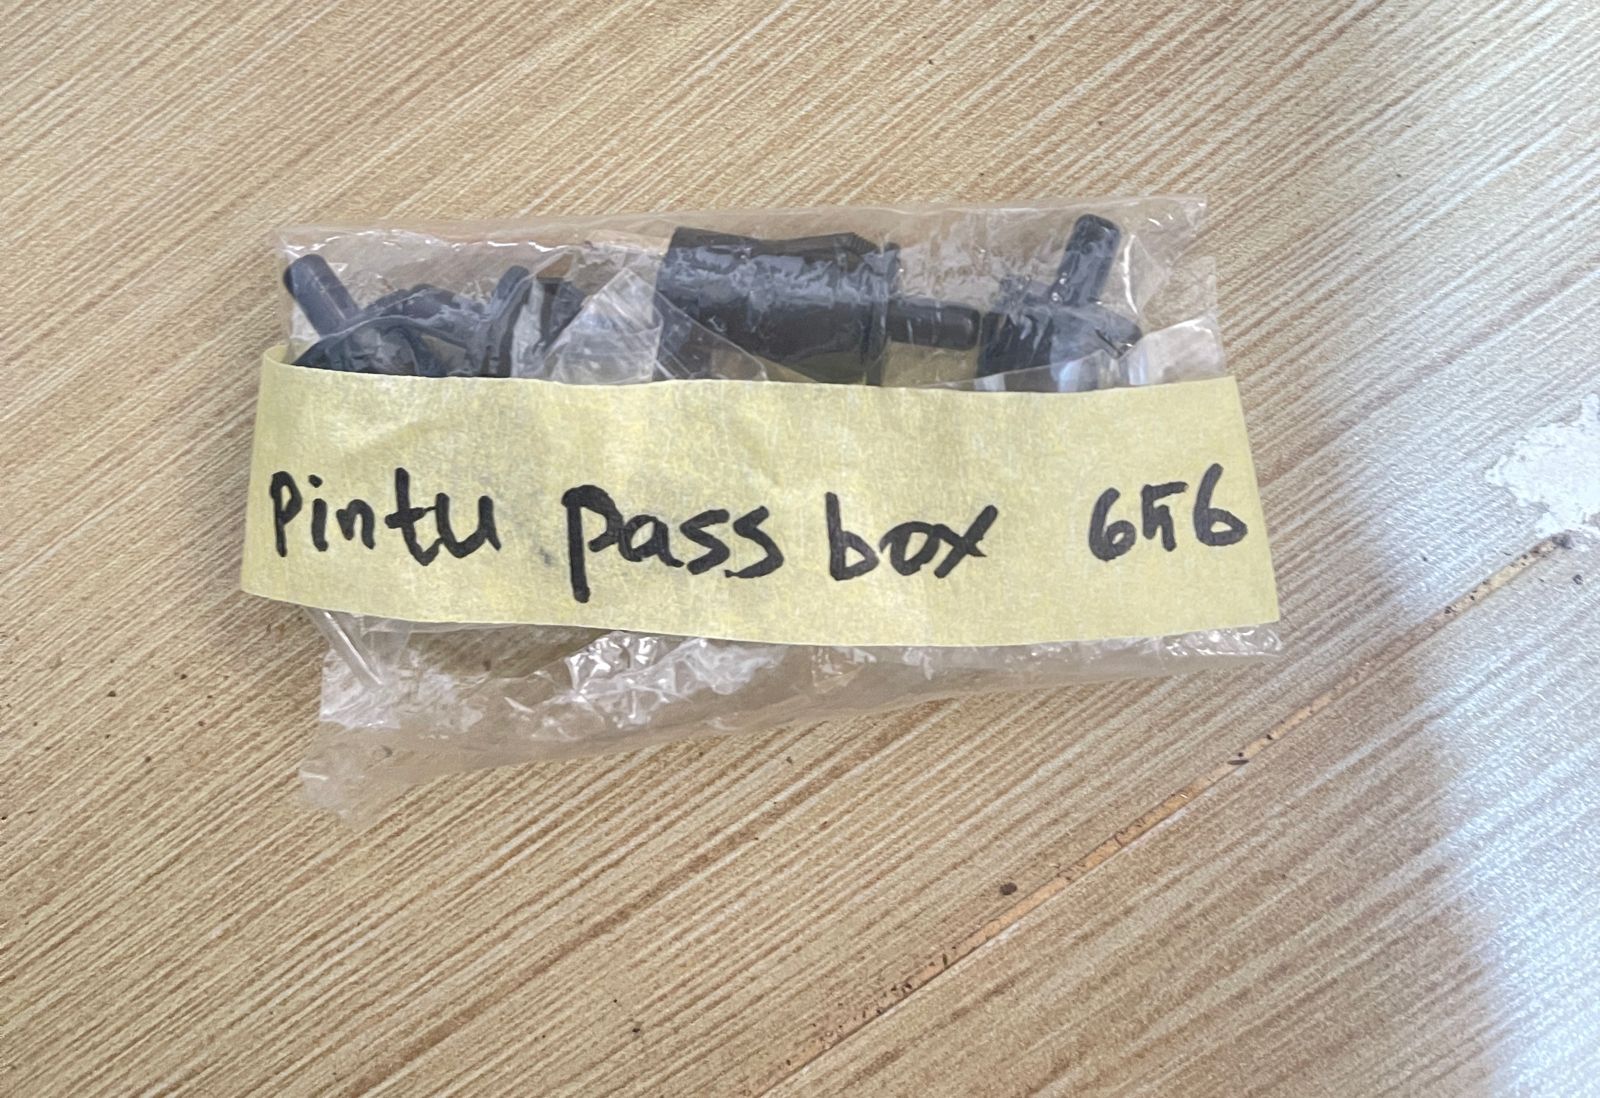 Pintu pass box 656